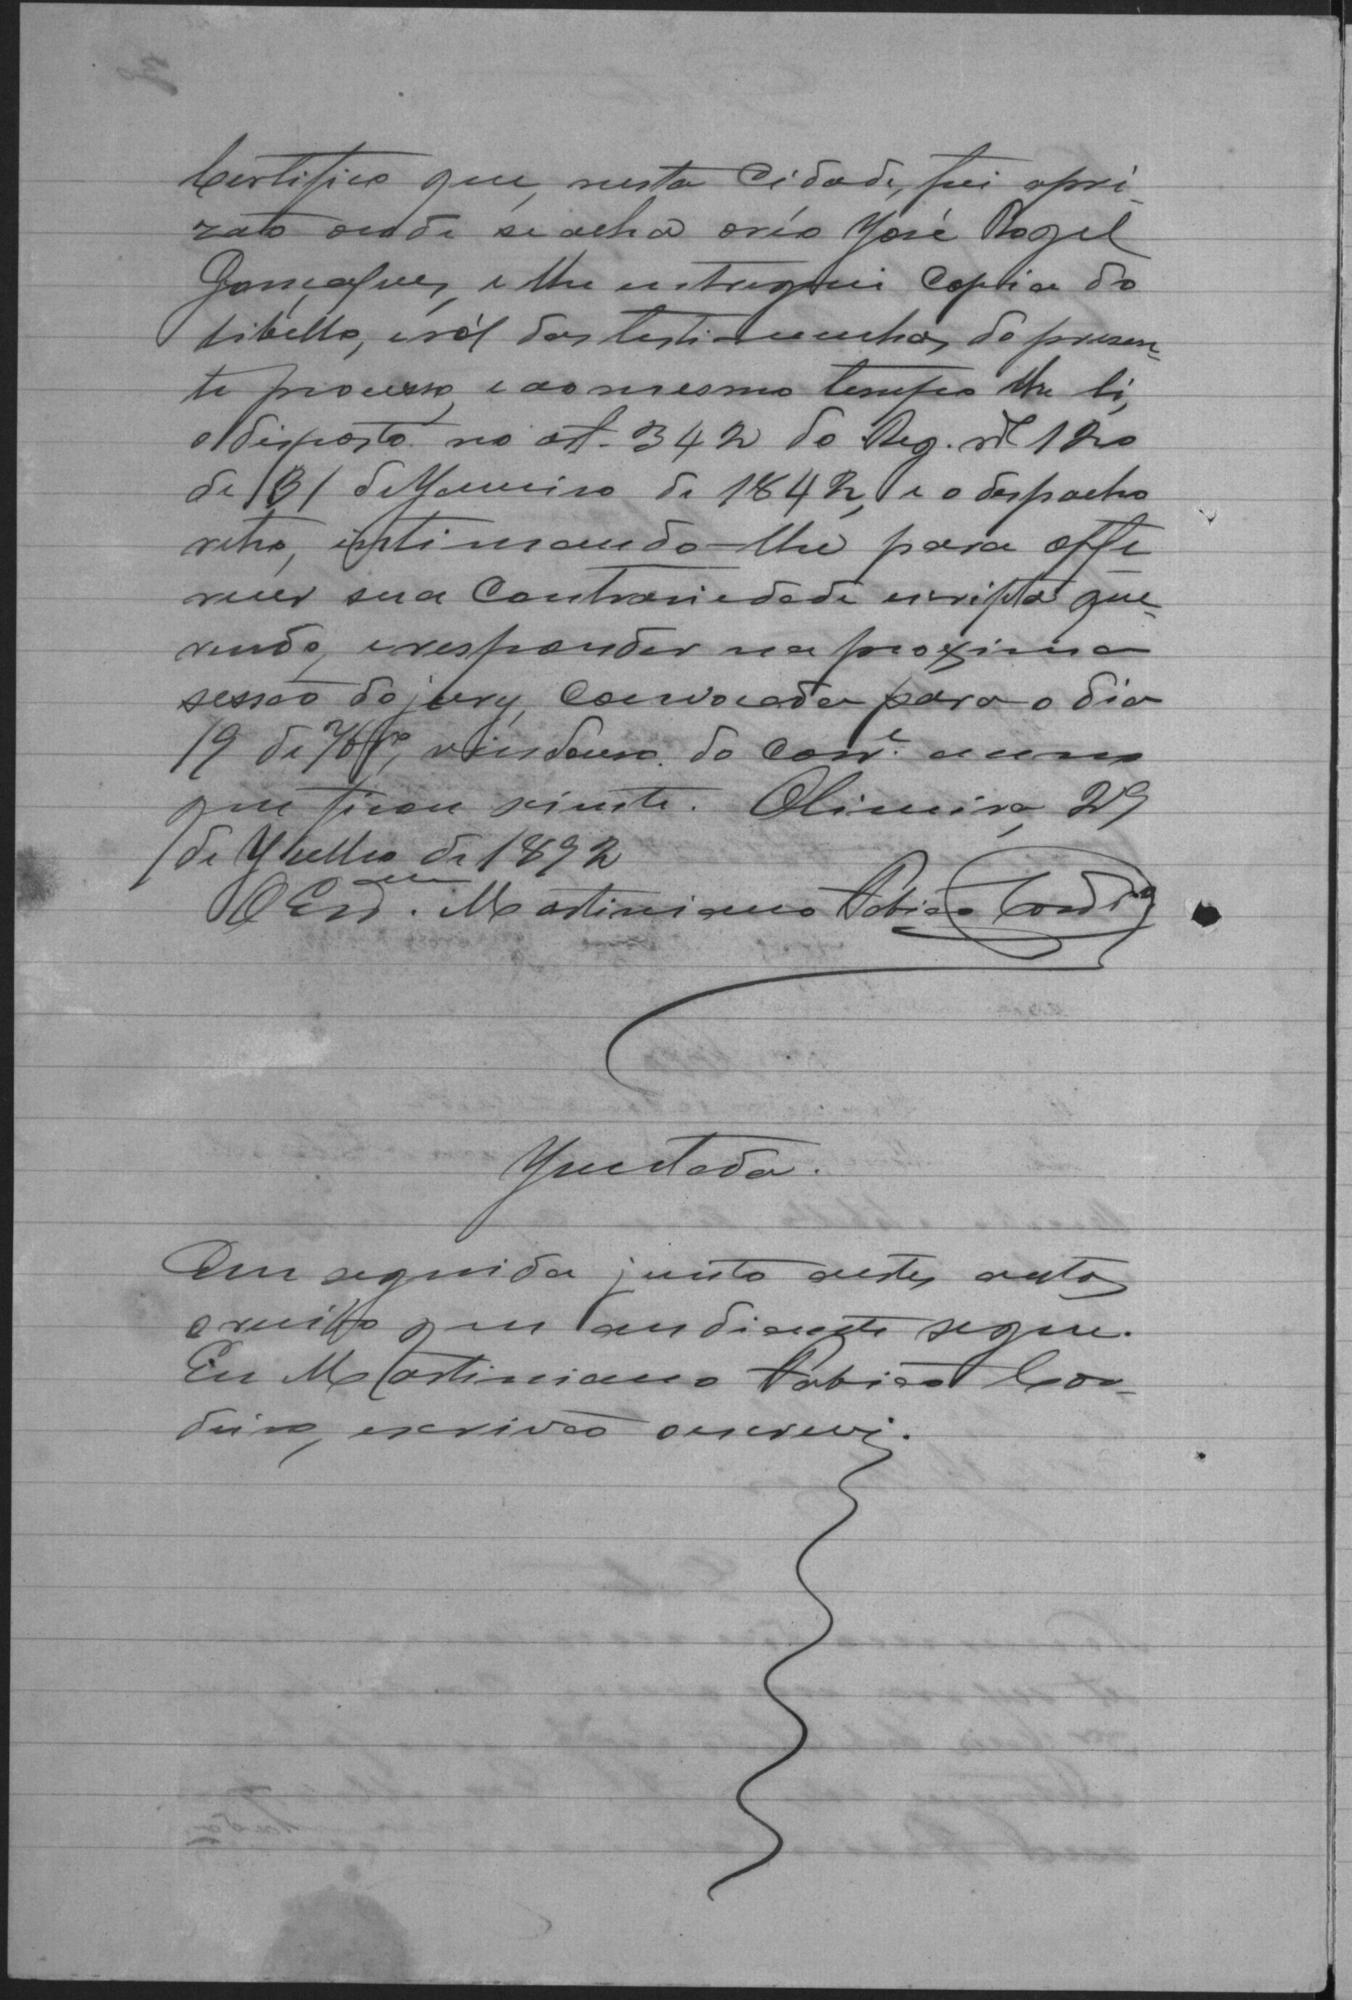 Certifico que, nesta Cidade, fui a pri-
zão onde se acha o réo José Rogel
Gonçalves, e lhe entreguei Copia do
libello, e ról das testimunhas do presen-
te processo, e ao mesmo tempo lhe li,
o disposto no art. 342 do Reg. nº 120
de 31 de Janeiro de 1842, e o despacho
retro, intimando-lhe para offe-
recer sua Contrariedade escripta que-
rendo, e responder na proxima
sessão do jury, Convocada para o dia
19 de 7brº, vindouro do corrᵉ anno
que ficou siente. Oliveira, 29
de Julho de 1892
O Escᵃᵐ. Martiniano Tobias Cordrº
Juntada.
Em seguida junto a estes autos
o recibo que em diante segue.
Eu Martiniano Tobias Cor-
deiro, escrivão o escrevi.